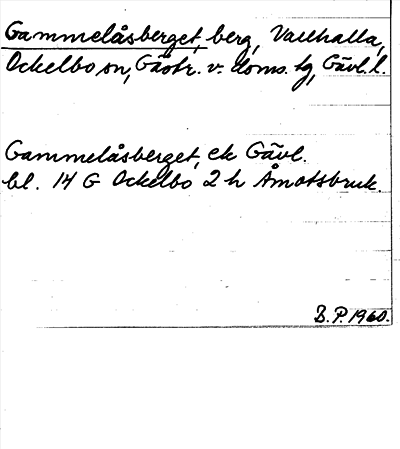 Gammelåsberget, berg, Vallhalla,
Ockelbo sn, Gästr. v. doms. tg, Gävl. l.
Gammelåsberget, ek Gävl.
bl. 14 G Ockelbo 2 h Åmotsbruk.
B.P. 1960.